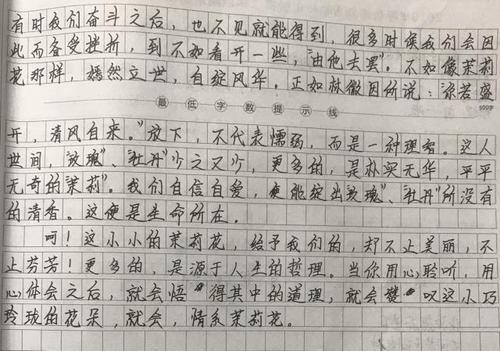 有时我们奋斗之后，也不见就能得到，很多时候我们会因
此而备受挫折，到不如看开一些，“由他去罢”。不如像茉莉
花那样，嫣然立世，自绽风华。正如林徽因所说：“你若盛
最低字数提示线
500字
开，清风自来。”放下，不代表懦弱，而是一种理智。这人
世间，“玫瑰”、“牡丹”少之又少，更多的，是朴实无华，平平
无奇的“茉莉”。我们自信自爱，便能绽出“玫瑰”、“牡丹”所没有
的清香。这便是生命所在。
呵！这小小的茉莉花，给予我们的，却不止美丽，不
止芬芳！更多的，是源于人生的哲理。当你用心聆听，用
心体会之后，就会悟得其中的道理，就会赞叹这小巧
玲珑的花朵，就会，情系茉莉花。